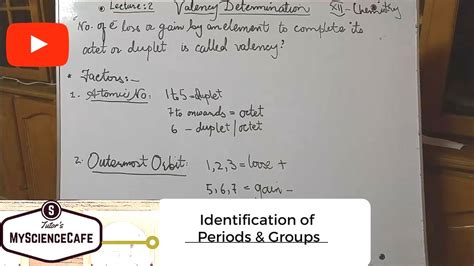 Lecture: 2 Valency Determination XII - Chemistry
No. of e⁻ loss or gain by an element to complete its
octet or duplet is called valency?
* Factors:-
1. Atomic No: 1 to 5 = duplet
7 to onwards = octet
6 - duplet/octet
2. Outermost Orbit: 1, 2, 3 = lose +
5, 6, 7 = gain -
S
Tutor's
MyScienceCafe
Identification of
Periods & Groups